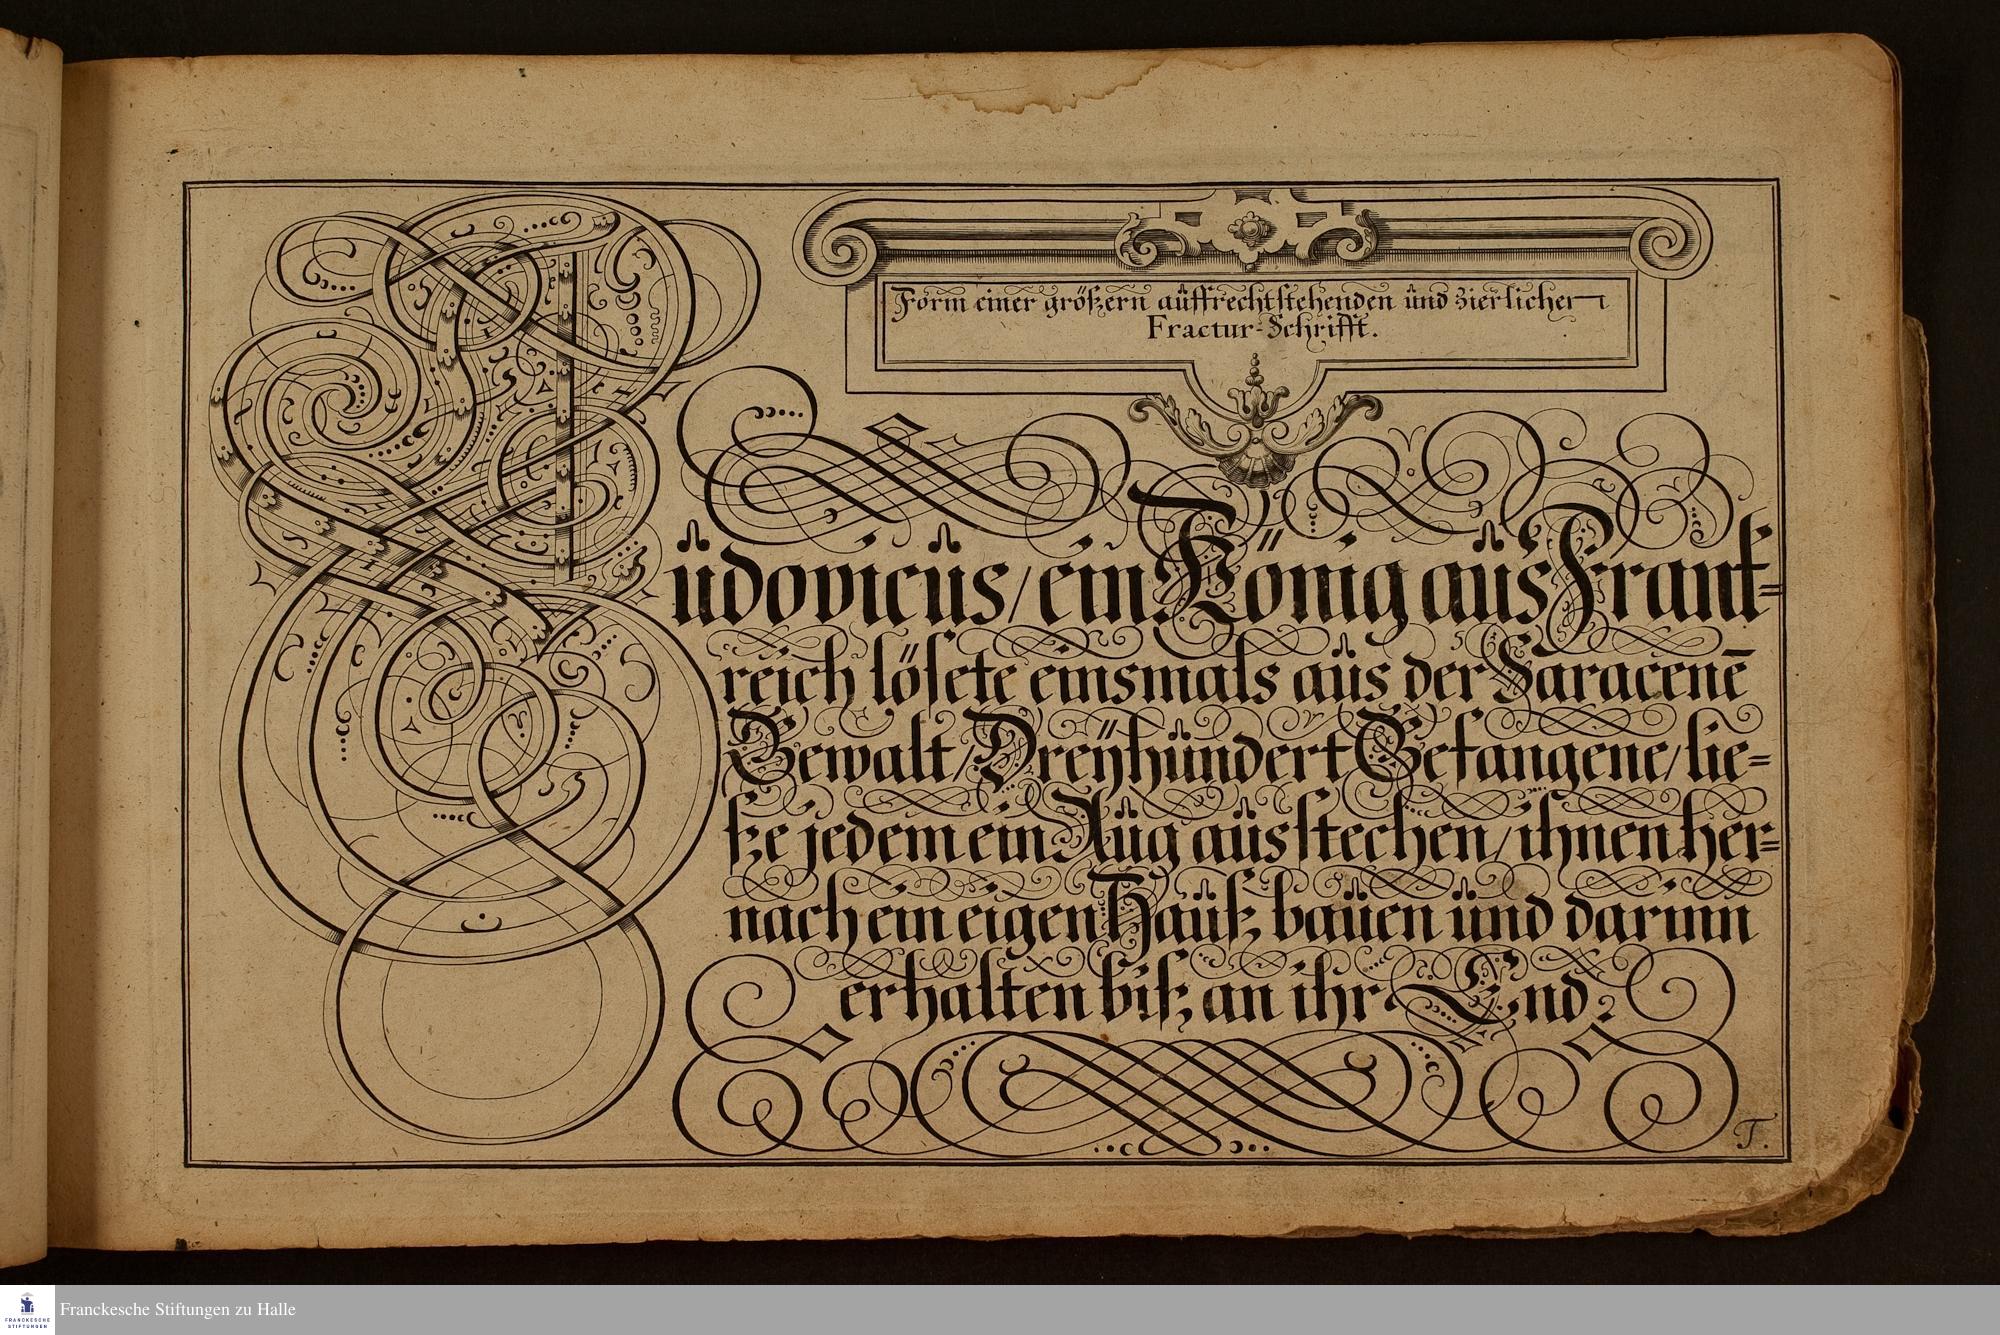 Form einer größern auffrechtstehenden und zierlicher
Fractur-Schrifft.
Ludovicus / ein König aus Frank=
reich lösete einsmals aus der Saracenē
Gewalt / Dreÿhundert Gefangene / lie=
ße jedem ein Aug ausstechen / ihnen her=
nach ein eigen Hauß bauen und darinn
erhalten biß an ihr End.
T.
Franckesche Stiftungen zu Halle
FRANCKESCHE
STIFTUNGEN